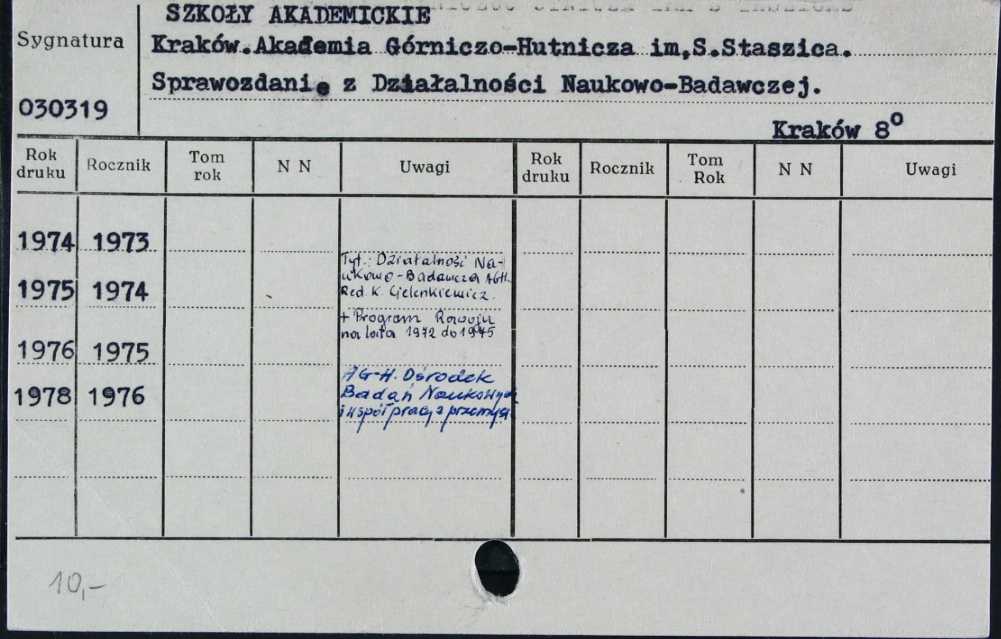 SZKOŁY AKADEMICKIE
Sygnatura
Kraków.Akademia Górniczo-Hutnicza im,S.Staszica.
Sprawozdanie z Działalności Naukowo-Badawczej.
030319
Kraków 8⁰
Rok druku Rocznik Tom rok N N Uwagi Rok druku Rocznik Tom Rok N N Uwagi
1974 1973
Tyt.: Działalność Na-
ukowo-Badawcza AGH.
1975 1974
Red K.
+ Program Rozwoju
na lata 1972 do 1975
1976 1975
AG-H. Ośrodek
1978 1976
Badań Naukowych
i współpracy z przemysł.
10,-